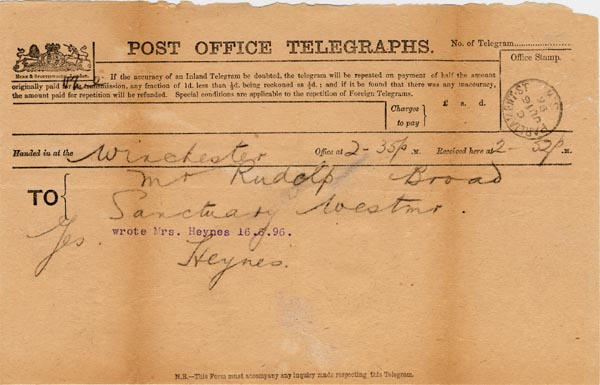 POST OFFICE TELEGRAPHS.
No. of Telegram
Office Stamp.
If the accuracy of an Inland Telegram be doubted, the telegram will be repeated on payment of half the amount
originally paid for its transmission, any fraction of 1d. less than ½d. being reckoned as ½d.; and if it be found that there was any inaccuracy,
the amount paid for repetition will be refunded. Special conditions are applicable to the repetition of Foreign Telegrams.
Charges to pay
£ s. d.
PARLIAMENT ST
JU 16
96
Handed in at the Winchester Office at 2-35p .M. Received here at 2-52p .M.
TO
Mr Rudolp Broad
Sanctuary Westmr.
Yes.
wrote Mrs. Heynes 16.6.96.
Heynes.
N.B.—This Form must accompany any inquiry made respecting this Telegram.